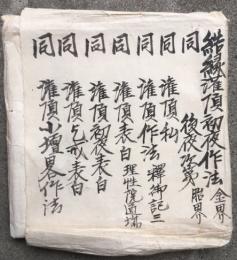 結縁灌頂初夜作法 金界
同 後夜次第 胎界
同 灌頂私 釋御記三
同 灌頂作法
同 灌頂表白 理性院道場
同 灌頂初夜表白
同 灌頂乞戒表白
同 灌頂小壇畧作法